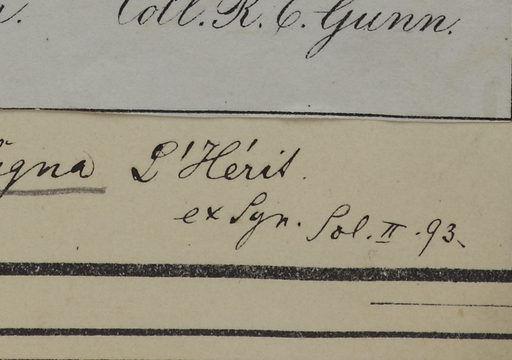 Coll. R. C. Gunn.
igna L'Hérit.
ex Syn. Sol. II. 93.